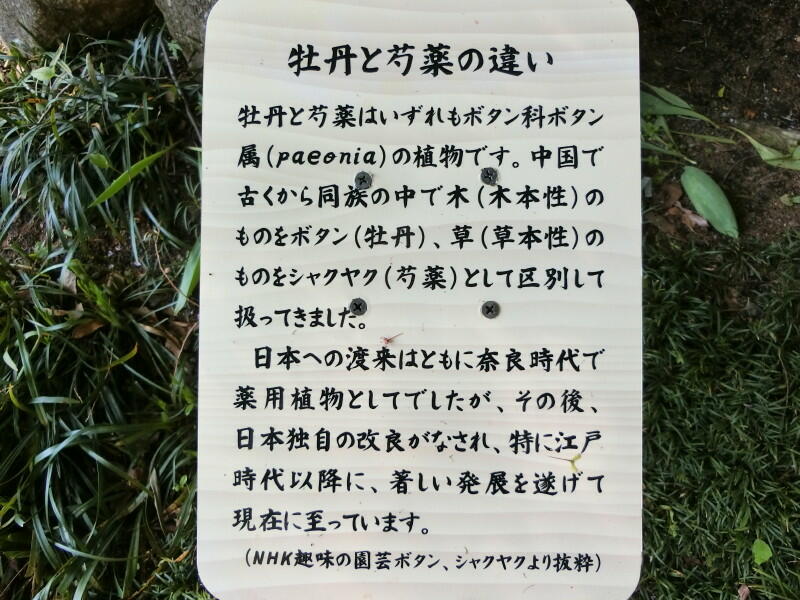 牡丹と芍薬の違い
牡丹と芍薬はいずれもボタン科ボタン
属(paeonia)の植物です。中国で
古くから同族の中で木(木本性)の
ものをボタン(牡丹)、草(草本性)の
ものをシャクヤク(芍薬)として区別して
扱ってきました。
日本への渡来はともに奈良時代で
薬用植物としてでしたが、その後、
日本独自の改良がなされ、特に江戸
時代以降に、著しい発展を遂げて
現在に至っています。
(NHK趣味の園芸ボタン、シャクヤクより抜粋)